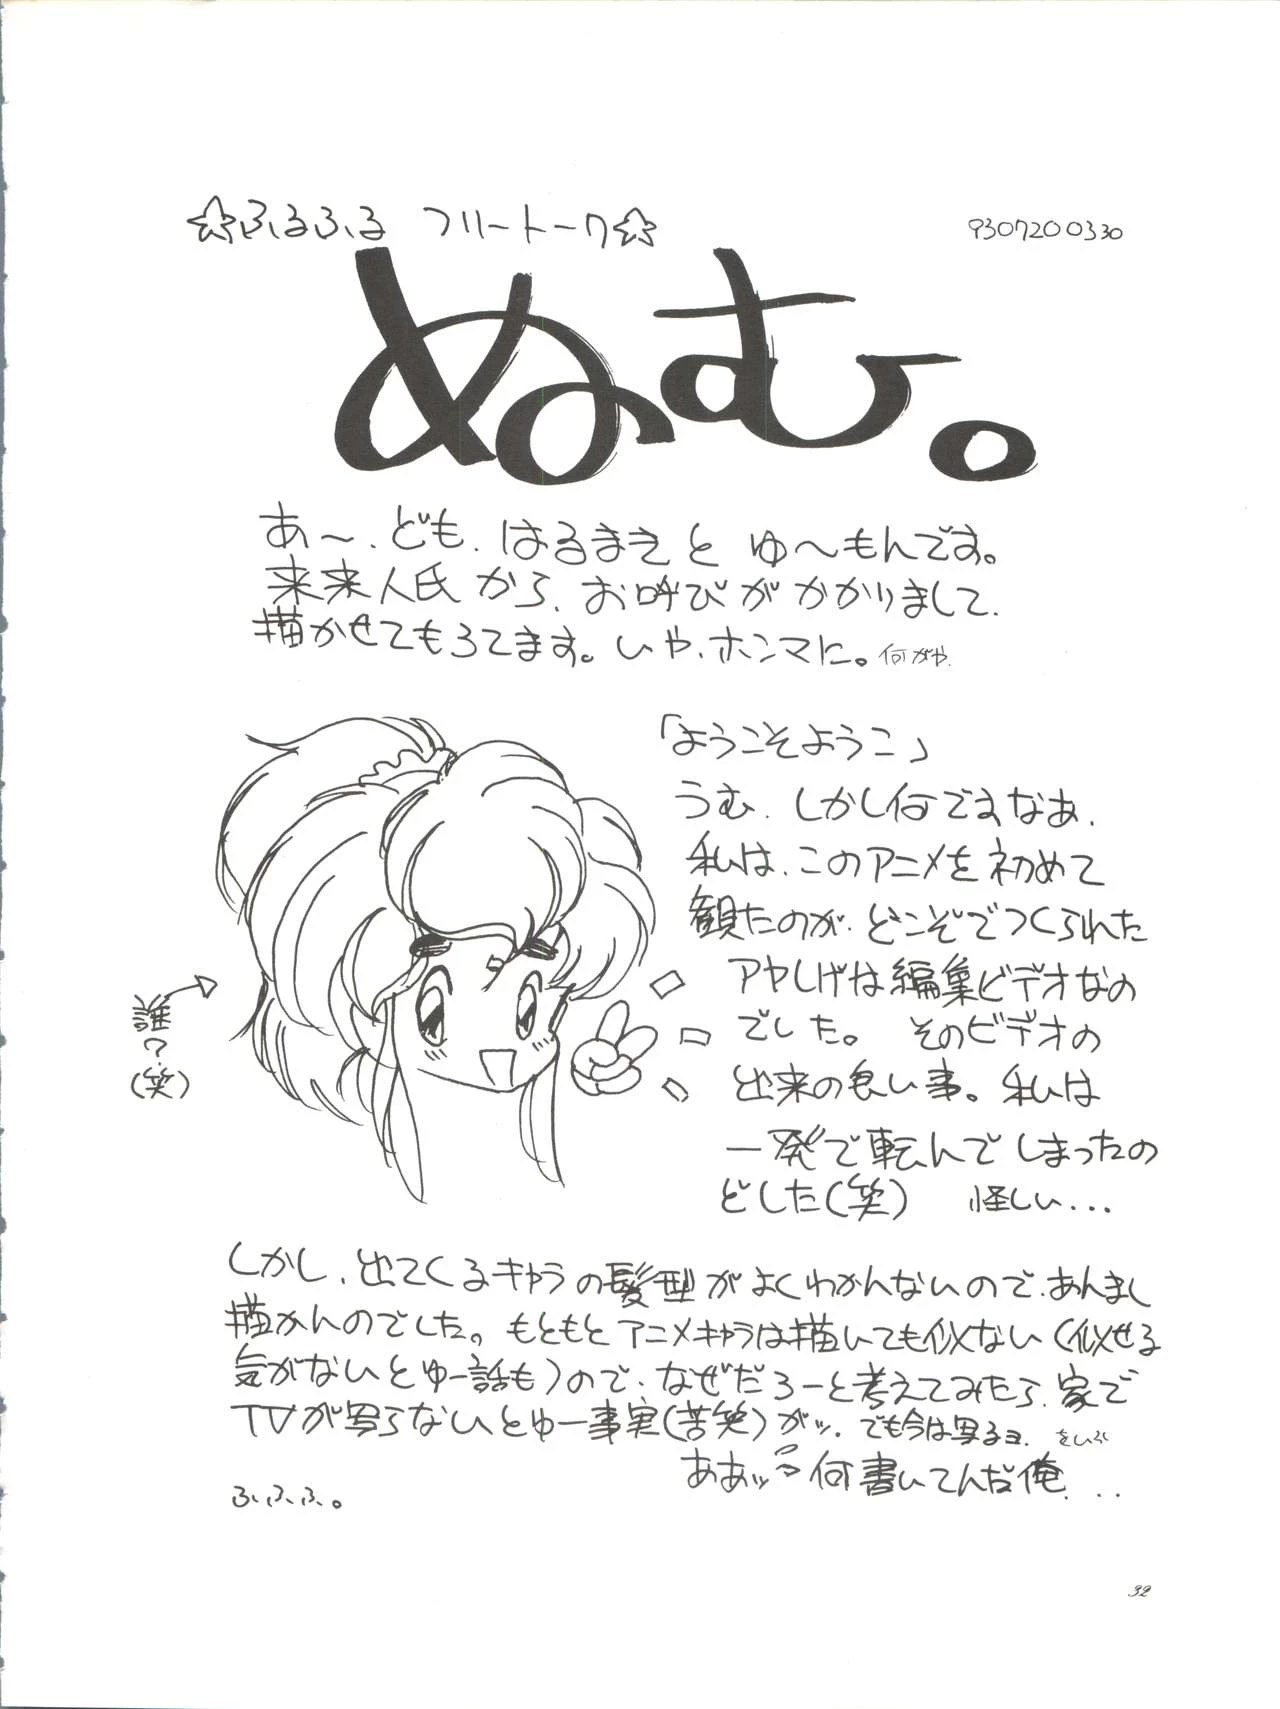 ☆ふるふる フリートーク☆
930720 0330
ぬむ。
あ〜、ども、はるまきと ゆ〜もんです。
来来人氏から、お呼びがかかりまして、
描かせてもろてます。いや、ホンマに。何がや、
「ようこそようこ」
うむ、しかし何ですなあ、
私は、このアニメを初めて
観たのが、どこぞでつくられた
アヤしげは編集ビデオなの
でした。 そのビデオの
出来の良い事。私は
一発で転んでしまったの
どした(笑) 怪しい...
誰?
(笑)
しかし、出てくるキャラの髪型がよくわかんないので、あんまし
描かんのでした。もともとアニメキャラは描いても似ない(似せる
気がないとゆー話も)ので、なぜだろーと考えてみたら、家で
TVが写らないとゆー事実(苦笑)がッ。でも今は写るヨ。
ああッ 何書いてんだ俺...
ふ、ふ、ふ。
32